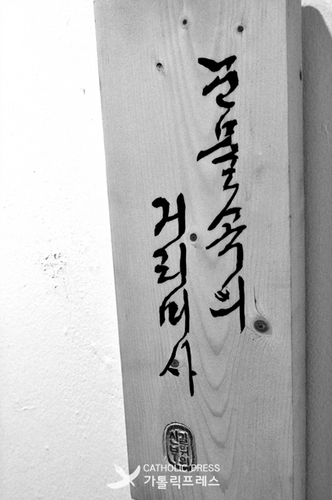 눈물속의
거리미사
CATHOLIC PRESS
가톨릭프레스